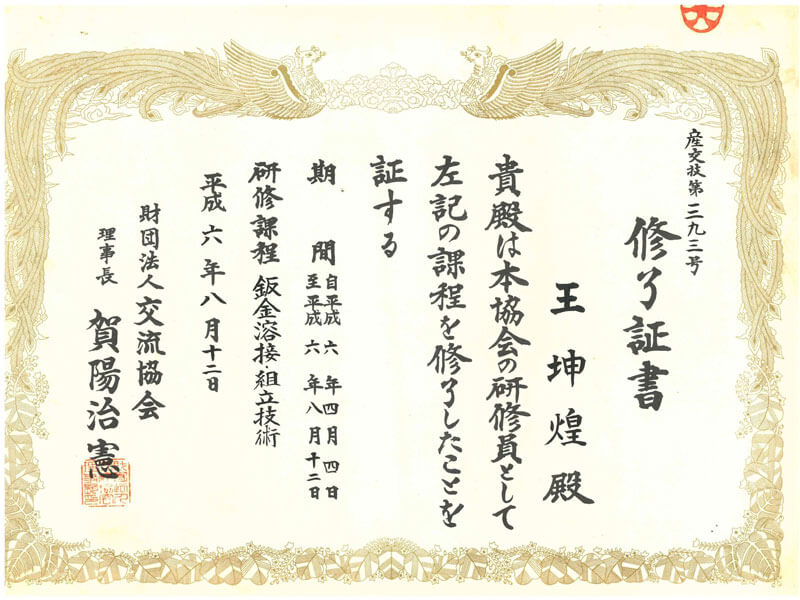 産交技第三九三号
修了証書
王坤煌殿
貴殿は本協会の研修員として
左記の課程を修了したことを
証する
期間 自平成六年四月四日
至平成六年八月十二日
研修課程 鈑金溶接・組立技術
平成六年八月十二日
財団法人交流協会
理事長 賀陽治憲